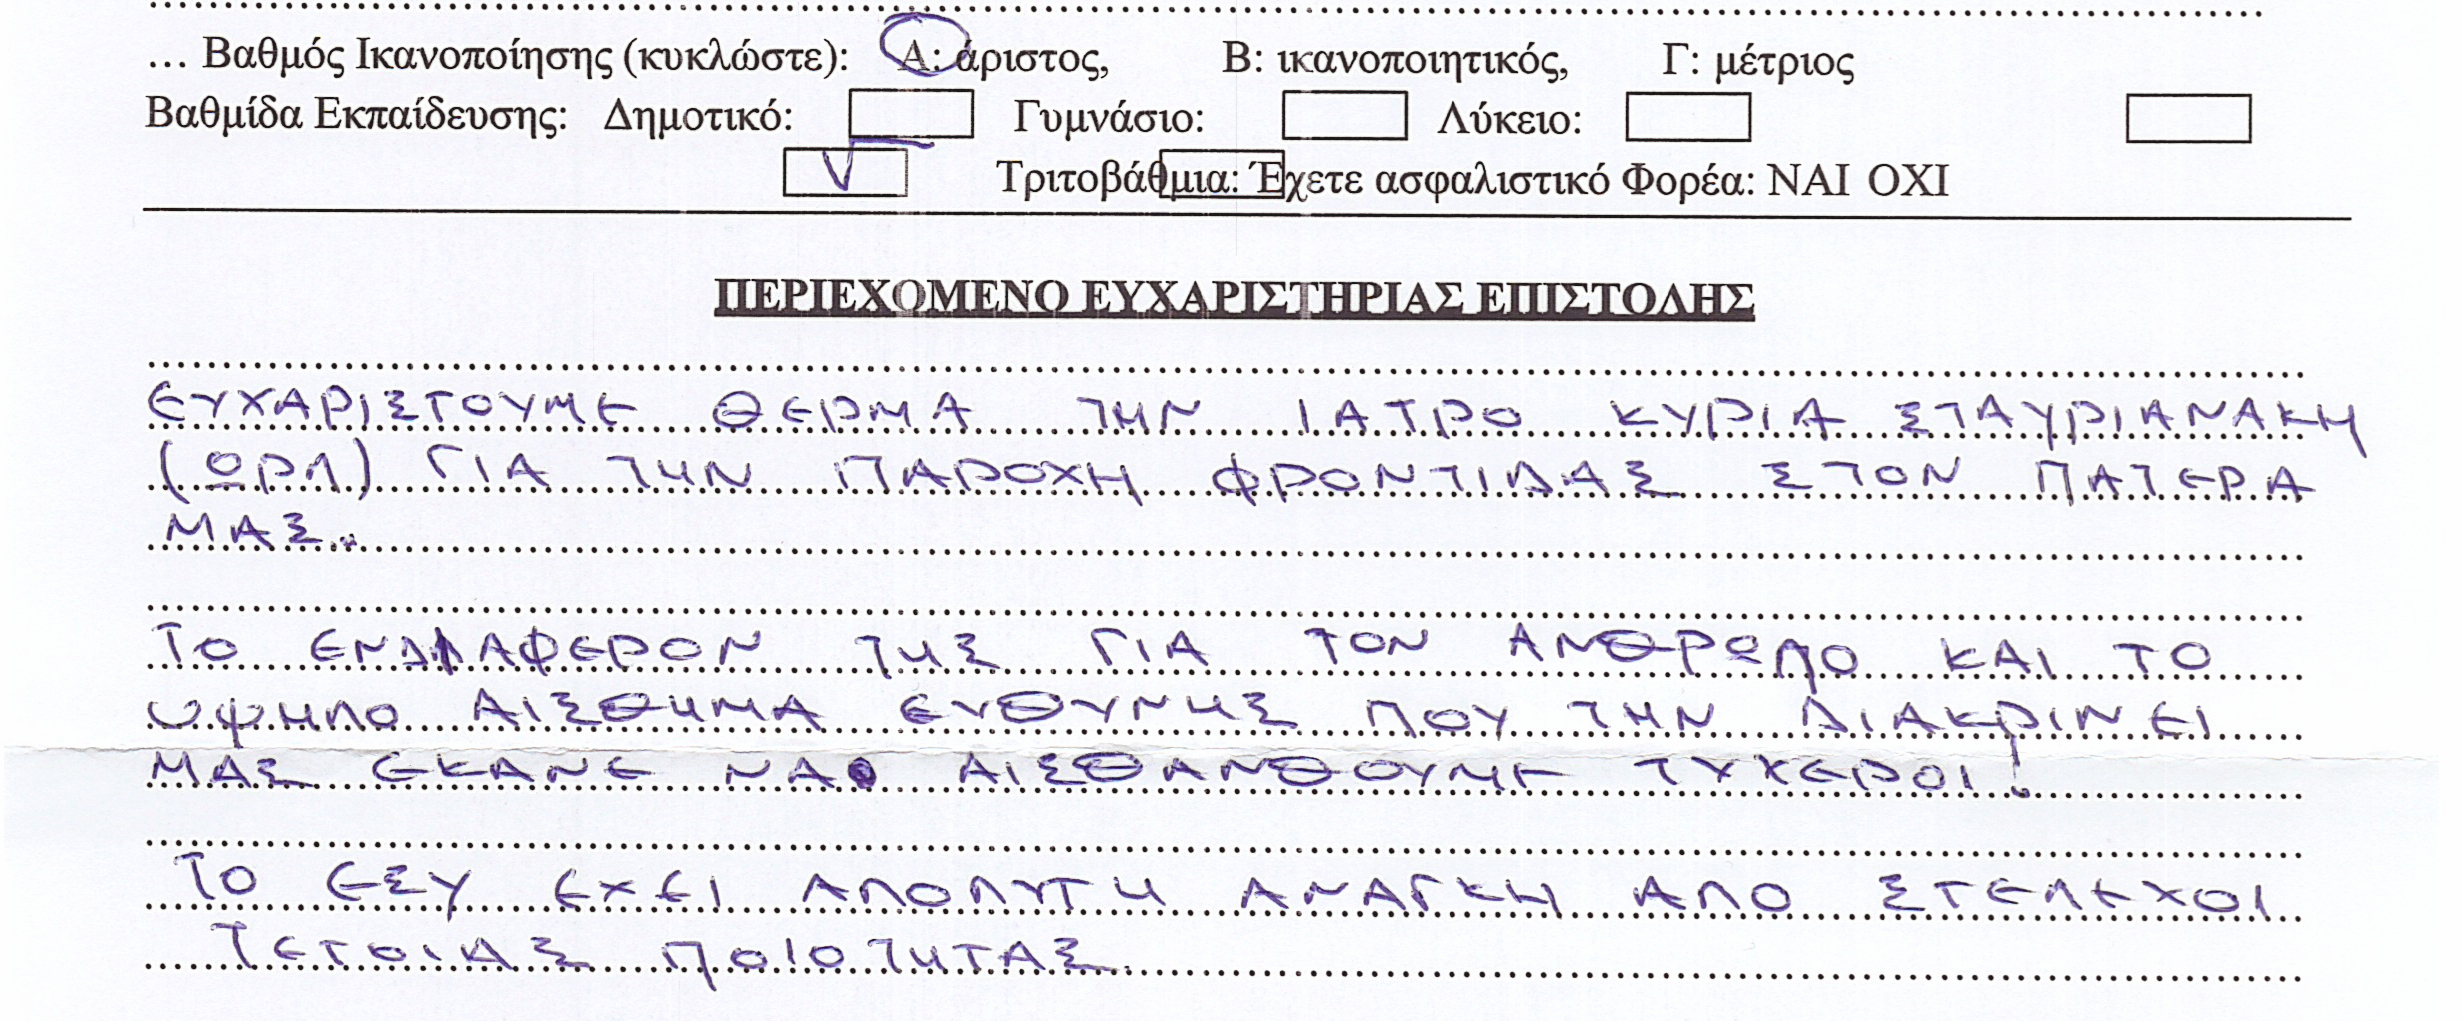 ... Βαθμός Ικανοποίησης (κυκλώστε): Α: άριστος, Β: ικανοποιητικός, Γ: μέτριος
Βαθμίδα Εκπαίδευσης: Δημοτικό: Γυμνάσιο: Λύκειο:
Τριτοβάθμια: Έχετε ασφαλιστικό Φορέα: ΝΑΙ ΟΧΙ
ΠΕΡΙΕΧΟΜΕΝΟ ΕΥΧΑΡΙΣΤΗΡΙΑΣ ΕΠΙΣΤΟΛΗΣ
ΕΥΧΑΡΙΣΤΟΥΜΕ ΘΕΡΜΑ ΤΗΝ ΙΑΤΡΟ ΚΥΡΙΑ ΣΤΑΥΡΙΑΝΑΚΗ
(ΩΡΛ) ΓΙΑ ΤΗΝ ΠΑΡΟΧΗ ΦΡΟΝΤΙΔΑΣ ΣΤΟΝ ΠΑΤΕΡΑ
ΜΑΣ.
ΤΟ ΕΝΔΙΑΦΕΡΟΝ ΤΗΣ ΓΙΑ ΤΟΝ ΑΝΘΡΩΠΟ ΚΑΙ ΤΟ
ΥΨΗΛΟ ΑΙΣΘΗΜΑ ΕΥΘΥΝΗΣ ΠΟΥ ΤΗΝ ΔΙΑΚΡΙΝΕΙ
ΜΑΣ ΕΚΑΝΕ ΝΑ ΑΙΣΘΑΝΘΟΥΜΕ ΤΥΧΕΡΟΙ!
ΤΟ ΕΣΥ ΕΧΕΙ ΑΠΟΛΥΤΗ ΑΝΑΓΚΗ ΑΠΟ ΣΤΕΛΕΧΟΙ
ΤΕΤΟΙΑΣ ΠΟΙΟΤΗΤΑΣ.